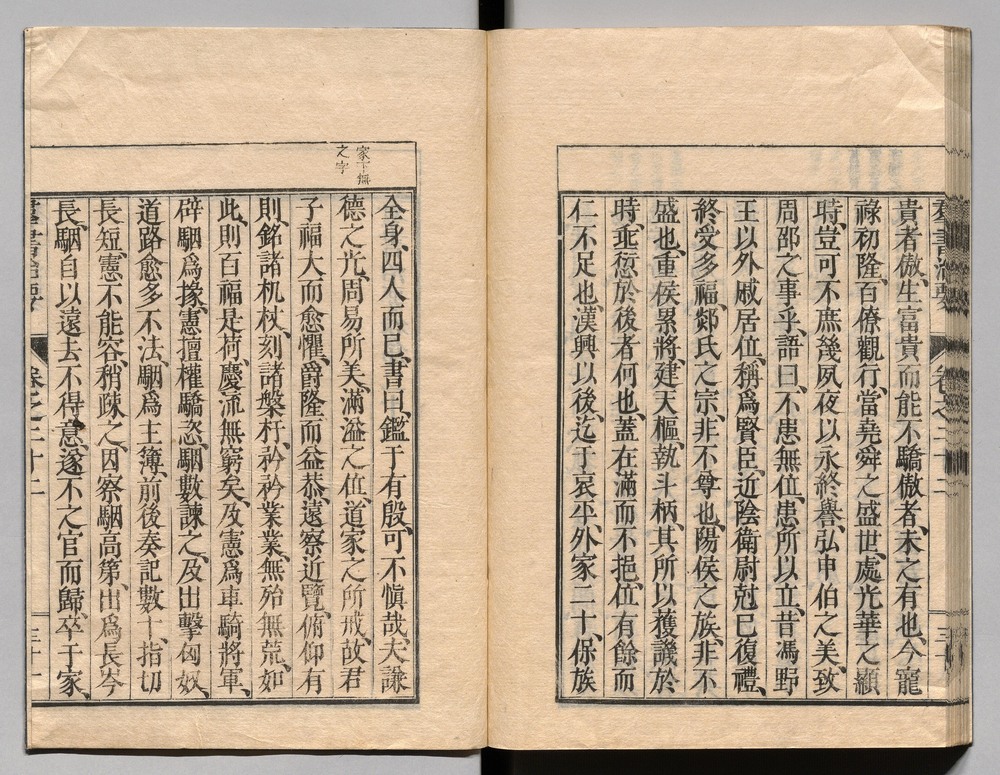 羣書治要 卷之二十二 三十
貴者傲、生富貴而能不驕傲者、未之有也、今寵
祿初隆、百僚觀行、當堯舜之盛世、處光華之顯
時、豈可不庶幾夙夜以永終譽、弘申伯之美、致
周邵之事乎、語曰、不患無位、患所以立、昔馮野
王以外戚居位、稱爲賢臣、近陰衛尉尅己復禮、
終受多福、郯氏之宗、非不尊也、陽侯之族、非不
盛也、重侯累將、建天樞、執斗柄、其所以獲譏於
時、乖愆於後者何也、蓋在滿而不挹、位有餘而
仁不足也、漢興以後、迄于哀平、外家二十、保族
家下無
之字
全身、四人而已、書曰、鑑于有殷、可不愼哉、夫謙
德之光、周易所美、滿溢之位、道家之所戒、故君
子福大而愈懼、爵隆而益恭、遠察近覽、俯仰有
則、銘諸机杖、刻諸槃杅、矜矜業業、無殆無荒、如
此、則百福是荷、慶流無窮矣、及憲爲車騎將軍、
辟駰爲掾、憲擅權驕恣、駰數諫之、及出擊匈奴、
道路愈多不法、駰爲主簿、前後奏記數十、指切
長短、憲不能容、稍疎之、因察駰高第、出爲長岑
長、駰自以遠去不得意、遂不之官而歸、卒于家、
羣書治要 卷之二十二 三十一